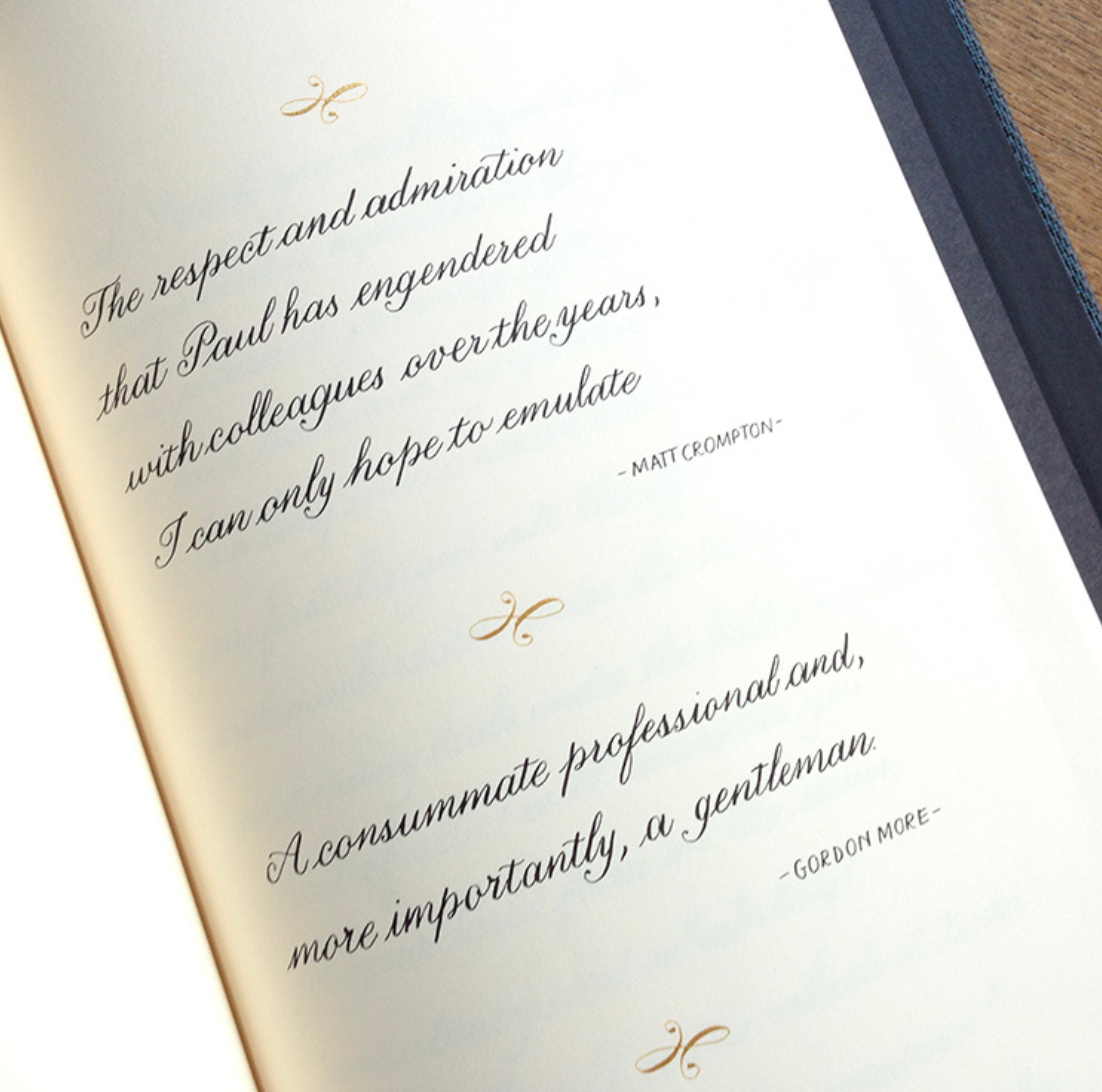 The respect and admiration
that Paul has engendered
with colleagues over the years,
I can only hope to emulate
- MATT CROMPTON -
A consummate professional and,
more importantly, a gentleman.
- GORDON MORE -